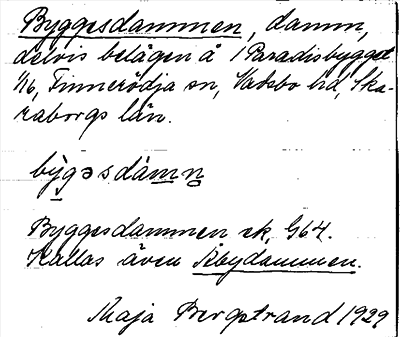 Byggesdammen, damm,
delvis belägen å 1 Paradisbygget
1/16, Finnerödja sn, Vadsbo hd, Ska-
raborgs län.
bỳgəsdàmn̥
Byggesdammen ek. G64.
Kallas även Åbydammen.
Maja Bergstrand 1929